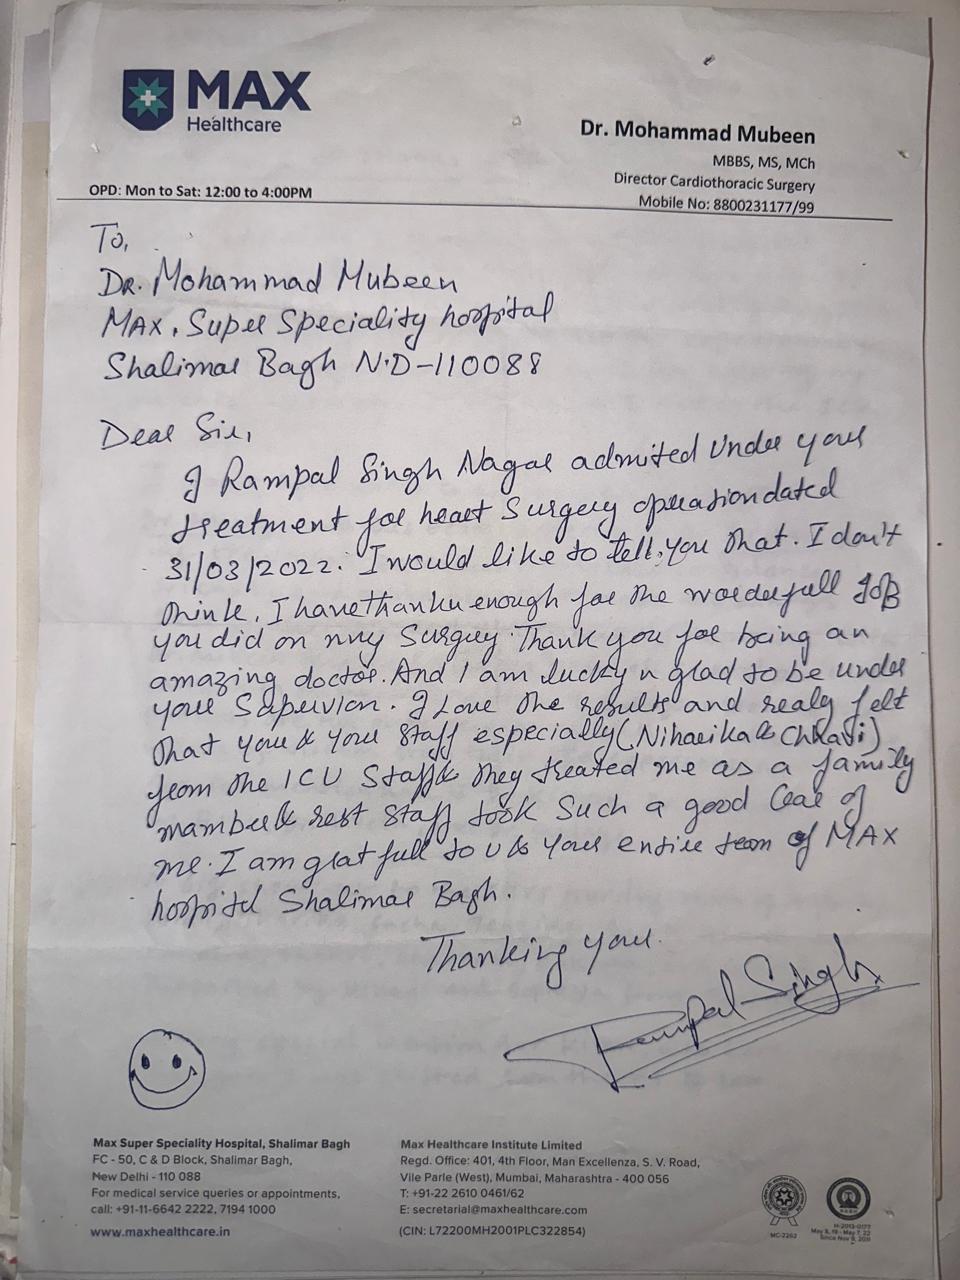 MAX
Healthcare
Dr. Mohammad Mubeen
MBBS, MS, MCh
Director Cardiothoracic Surgery
Mobile No: 8800231177/99
OPD: Mon to Sat: 12:00 to 4:00PM
To,
DR. Mohammad Mubeen
MAX. Super Speciality hospital
Shalimar Bagh N.D-110088
Dear Sir,
I Rampal Singh Nagar admited Under your
treatment for heart Surgery operation dated
31/03/2022. I would like to tell, you that. I don't
think, I have thanku enough for the worderfull JOB
you did on my Surgey. Thank you for being an
amazing doctor. And I am lucky n glad to be under
your Supervion. I Love the results and realy felt
that you & your Staff especially (Niharika &
from the ICU Staff& they treated me as a family
mamber& rest Staff took Such a good Care of
me. I am gratfull to U & your entire team of MAX
hospitel Shalimar Bagh.
Thanking your.
Rampal Singh
Max Super Speciality Hospital, Shalimar Bagh
FC - 50, C & D Block, Shalimar Bagh,
New Delhi - 110 088
For medical service queries or appointments,
call: +91-11-6642 2222, 7194 1000
www.maxhealthcare.in
Max Healthcare Institute Limited
Regd. Office: 401, 4th Floor, Man Excellenza, S. V. Road,
Vile Parle (West), Mumbai, Maharashtra - 400 056
T: +91-22 2610 0461/62
E: secretarial@maxhealthcare.com
(CIN: L72200MH2001PLC322854)
MC-2262
H-2013-0177
May 8, 19 - May 7, 22
Since Nov 9, 2011